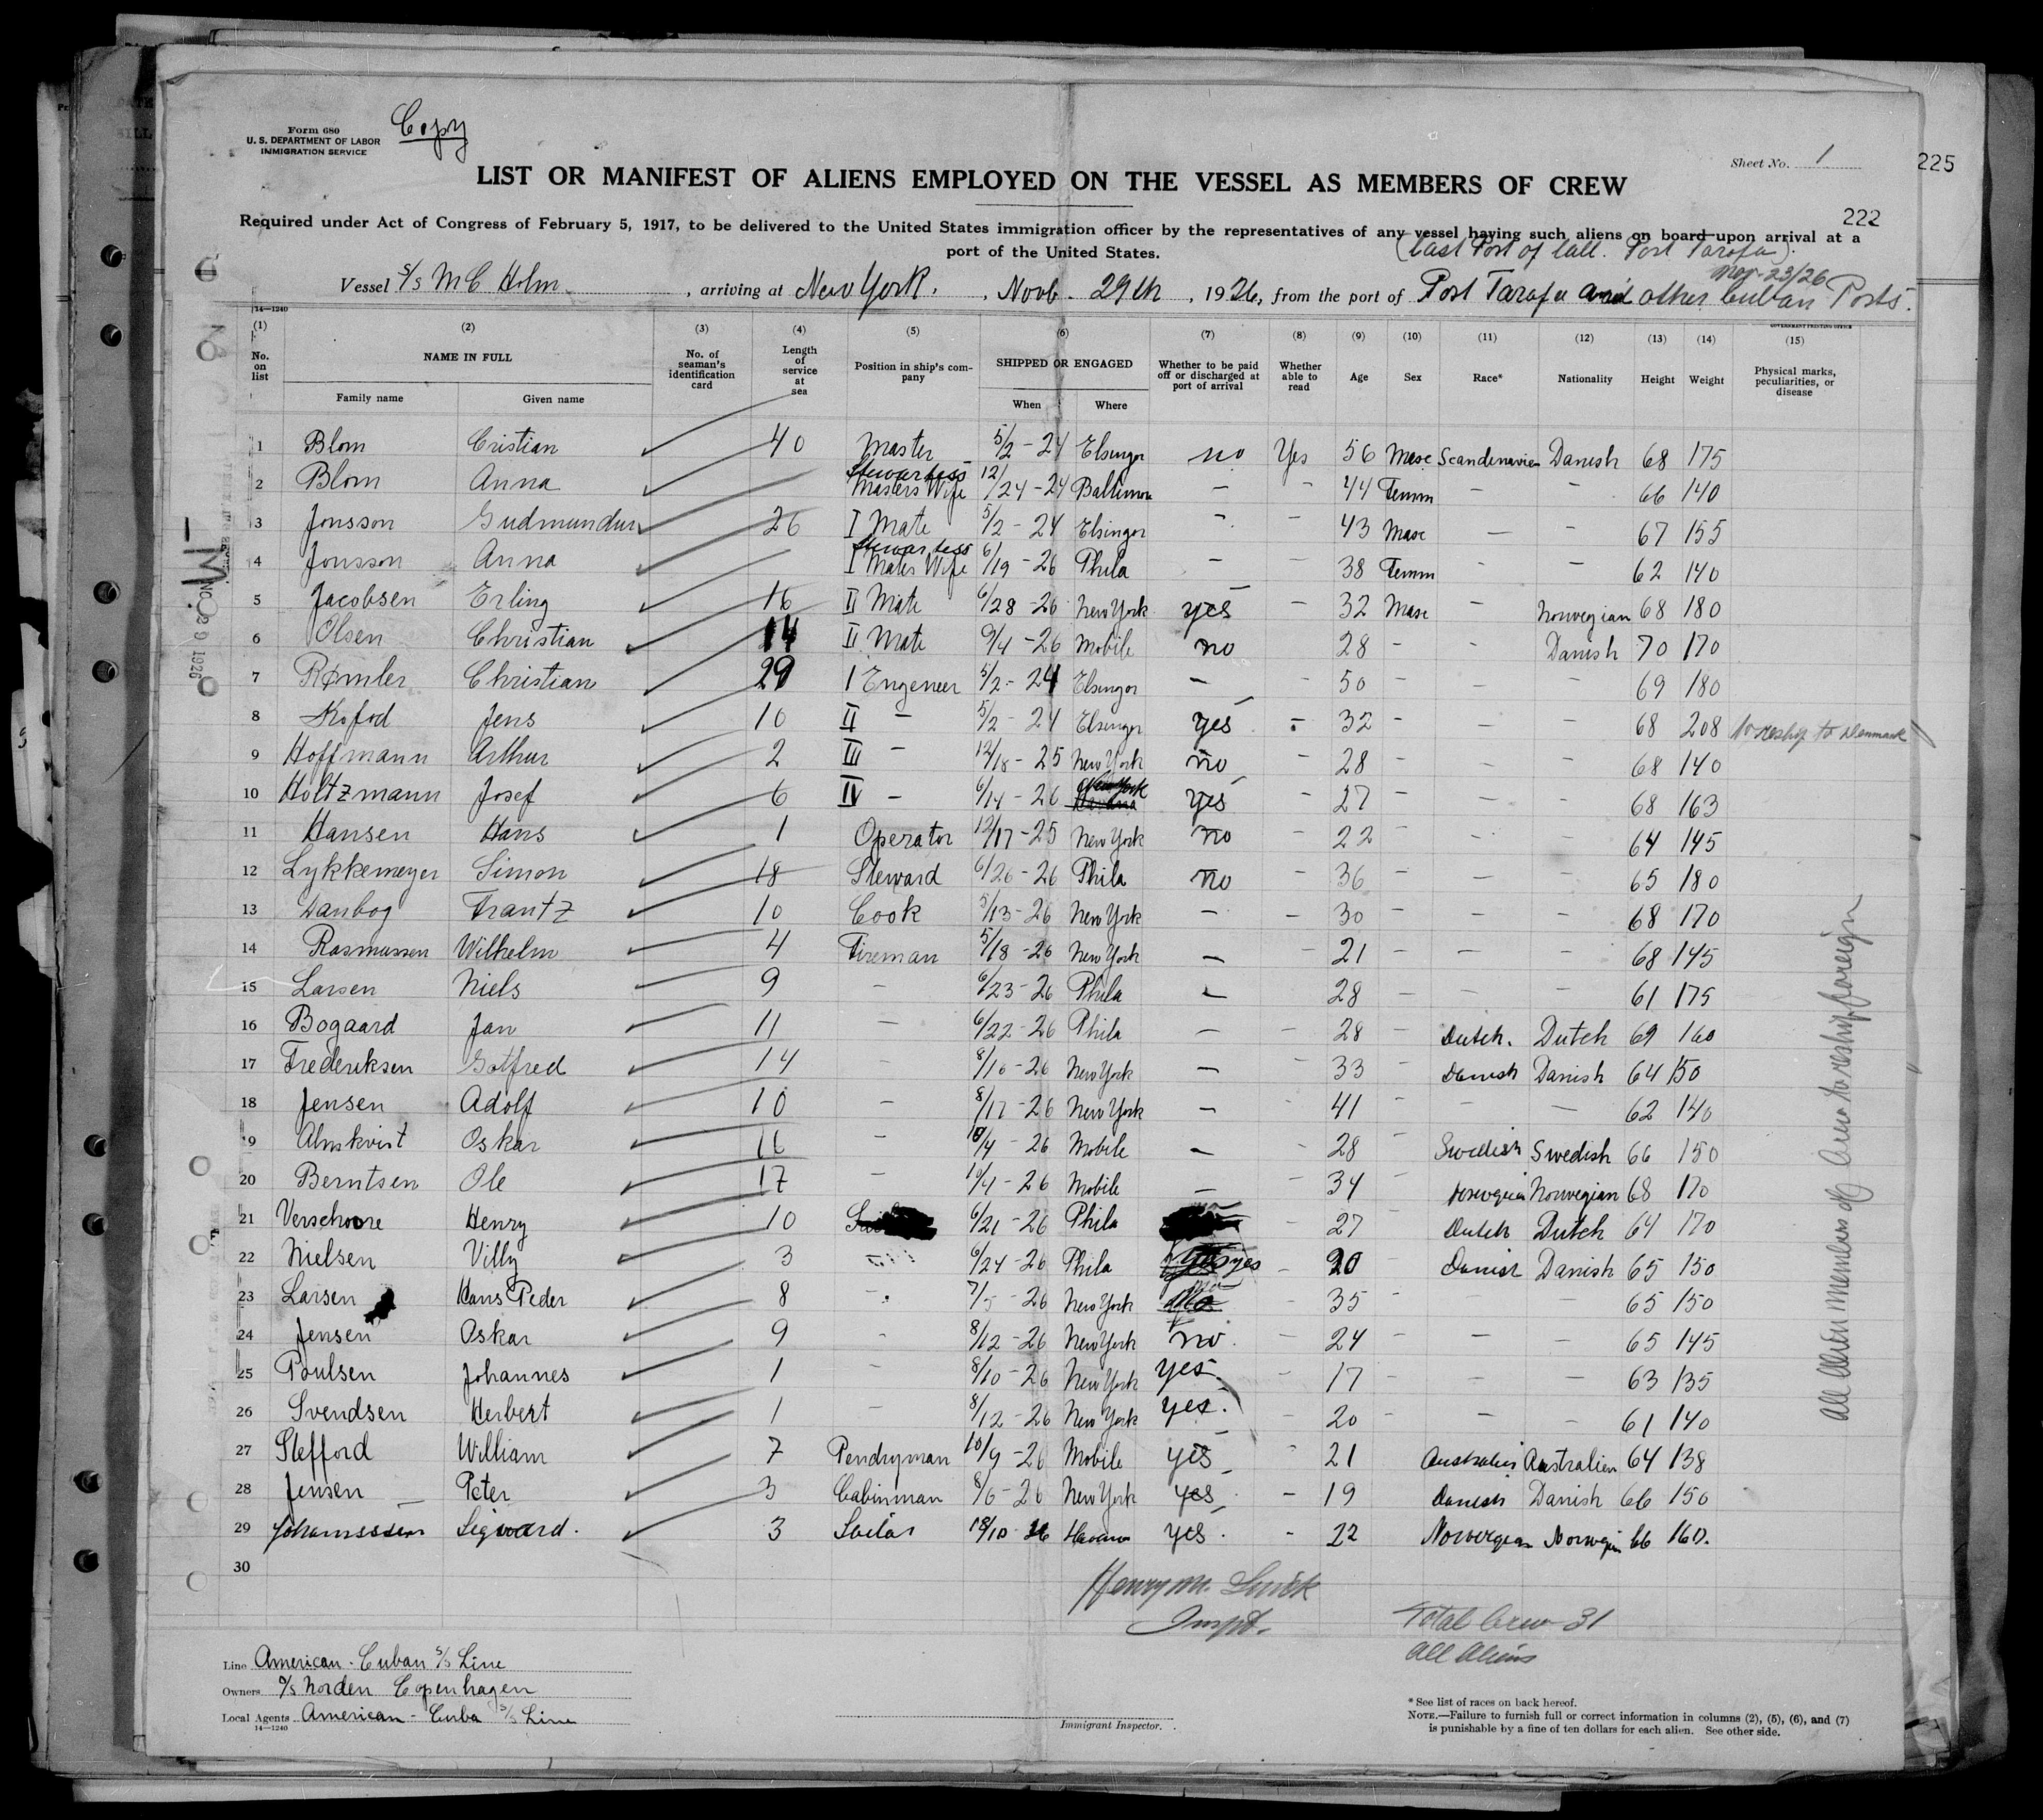 225
Form 680
U. S. DEPARTMENT OF LABOR
IMMIGRATION SERVICE
Copy
Sheet No. 1
LIST OR MANIFEST OF ALIENS EMPLOYED ON THE VESSEL AS MEMBERS OF CREW
222
Required under Act of Congress of February 5, 1917, to be delivered to the United States immigration officer by the representatives of any vessel having such aliens on board upon arrival at a
port of the United States.
(Last Port of Call. Port Tarafa).
Nov-23/26
Vessel S/S M C Holm, arriving at New York., Novb. 29th, 1926, from the port of Port Tarafa and other Cuban Ports.
14—1240
GOVERNMENT PRINTING OFFICE
(1) (2) (3) (4) (5) (6) (7) (8) (9) (10) (11) (12) (13) (14) (15)
No. on list NAME IN FULL No. of seaman's identification card Length of service at sea Position in ship's company SHIPPED OR ENGAGED Whether to be paid off or discharged at port of arrival Whether able to read Age Sex Race* Nationality Height Weight Physical marks, peculiarities, or disease
Family name Given name When Where
1 Blom Cristian 40 Master 5/2-24 Elsingor no Yes 56 Masc Scandinavien Danish 68 175
2 Blom Anna Stewardess Masters Wife 12/24-24 Baltimore - - 44 Femm - - 66 140
3 Jonsson Gudmundur 26 I Mate 5/2-24 Elsingor - - 43 Masc - - 67 155
4 Jonsson Anna Stewardess I Mates Wife 6/19-26 Phila - - 38 Femm - - 62 140
5 Jacobsen Erling 16 II Mate 6/28-26 New York yes - 32 Masc - Norvegian 68 180
6 Olsen Christian 14 II Mate 9/4-26 Mobile no 28 - - Danish 70 170
7 Rømler Christian 29 I Engeneer 5/2-24 Elsingor - - 50 - - - 69 180
8 Kofod Jens 10 II - 5/2-24 Elsingor yes - 32 - - - 68 208 To reship to Denmark
9 Hoffmann Arthur 2 III - 12/18-25 New York no - 28 - - - 68 140
10 Holtzmann Josef 6 IV - 6/14-26 New York yes - 27 - - - 68 163
11 Hansen Hans 1 Operator 12/17-25 New York no - 22 - - - 64 145
12 Lykkemeyer Simon 18 Steward 6/26-26 Phila no - 36 - - - 65 180
13 Danbog Frantz 10 Cook 5/13-26 New York - - 30 - - - 68 170
14 Rasmussen Wilhelm 4 Fireman 5/18-26 New York - - 21 - - - 68 145
15 Larsen Niels 9 - 6/23-26 Phila - 28 - - - 61 175
16 Bogaard Jan 11 - 6/22-26 Phila - - 28 - Dutch. Dutch 69 160
17 Frederiksen Gotfred 14 - 8/10-26 New York - - 33 - Danish Danish 64 150
18 Jensen Adolf 10 - 8/17-26 New York - - 41 - - - 62 140
19 Almkvist Oskar 16 - 10/4-26 Mobile - - 28 - Swedish Swedish 66 150
20 Berntsen Ole 17 - 10/4-26 Mobile - - 34 - Norvegian Norvegian 68 170
21 Verschoore Henry 10 6/21-26 Phila - 27 - Dutch Dutch 64 170
22 Nielsen Villy 3 6/24-26 Phila yes - 20 - Danish Danish 65 150
23 Larsen Hans Peder 8 - 7/5-26 New York - 35 - - - 65 150
24 Jensen Oskar 9 - 8/12-26 New York no. - 24 - - - 65 145
25 Poulsen Johannes 1 - 8/10-26 New York yes. - 17 - - - 63 135
26 Svendsen Herbert 1 - 8/12-26 New York yes. - 20 - - - 61 140
27 Stefford William 7 Pendryman 10/9-26 Mobile yes - 21 Australien Australien 64 138
28 Jensen Peter 3 Cabinman 8/6-26 New York yes - 19 Danish Danish 66 150
29 Johanssen Sigward. 3 Sailor 10-26 Havana yes. - 22 Norvegian Norvegian 66 160.
30
All Alien members of Crew to reship foreign
Henry M.
Inspt.
Total Crew 31
All Aliens
Line American-Cuban S/S Line
Owners D/S Norden Copenhagen
Local Agents American-Cuba S/S Line
14—1240
Immigrant Inspector.
* See list of races on back hereof.
NOTE.—Failure to furnish full or correct information in columns (2), (5), (6), and (7)
is punishable by a fine of ten dollars for each alien. See other side.